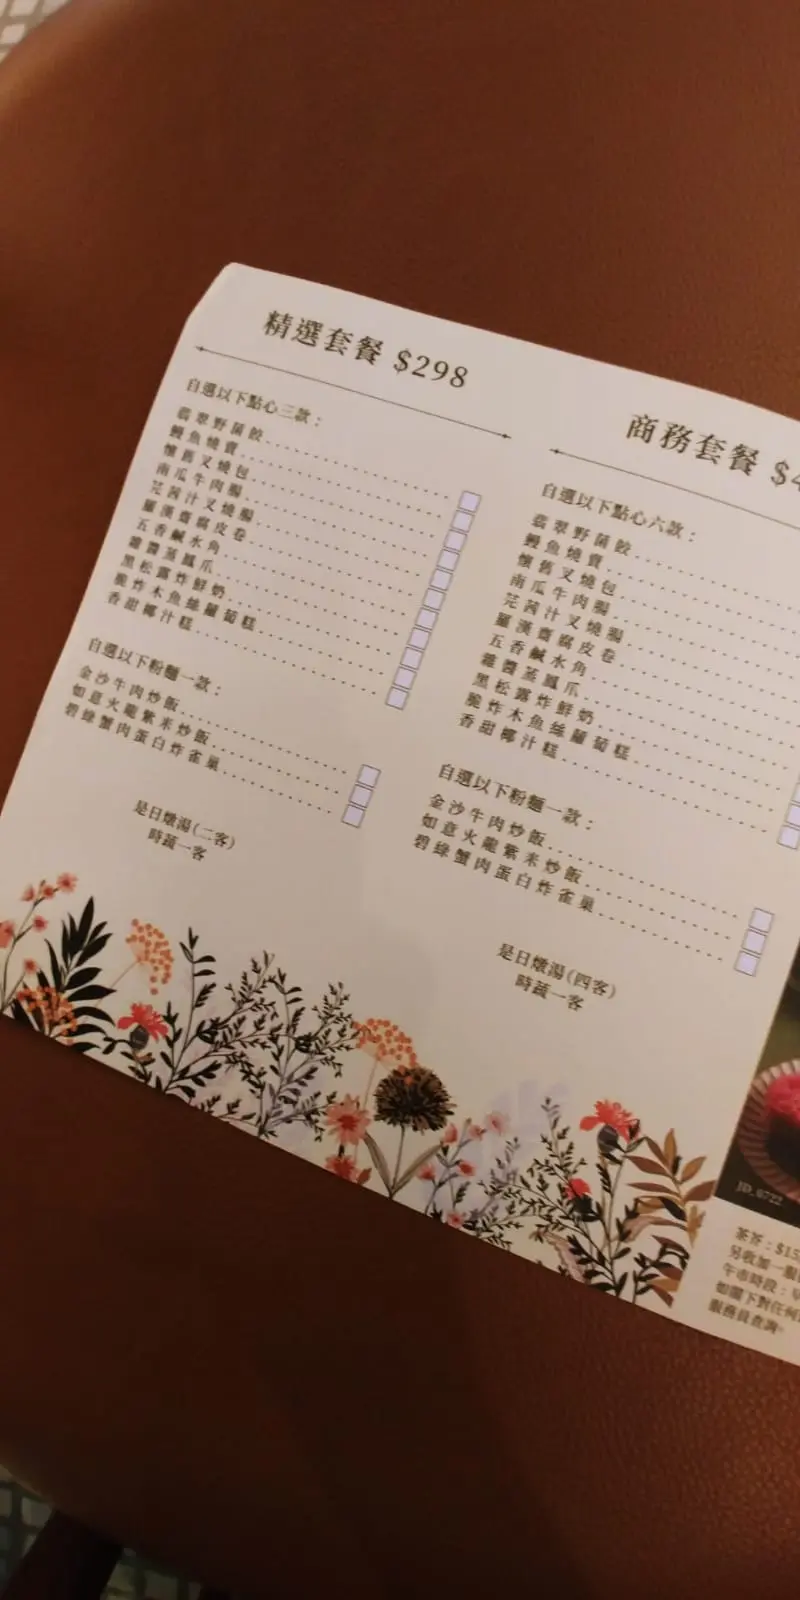 精選套餐 $298
自選以下點心三款：
翡翠野菌餃
鰻魚燒賣
懷舊叉燒包
南瓜牛肉腸
芫茜汁叉燒腸
羅漢齋腐皮卷
五香鹹水角
雞醬蒸鳳爪
黑松露炸鮮奶
脆炸木魚絲蘿蔔糕
香甜椰汁糕
自選以下粉麵一款：
金沙牛肉炒飯
如意火龍紫米炒飯
碧綠蟹肉蛋白炸雀巢
是日燉湯(二客)
時蔬一客
商務套餐 $4
自選以下點心六款：
翡翠野菌餃
鰻魚燒賣
懷舊叉燒包
南瓜牛肉腸
芫茜汁叉燒腸
羅漢齋腐皮卷
五香鹹水角
雞醬蒸鳳爪
黑松露炸鮮奶
脆炸木魚絲蘿蔔糕
香甜椰汁糕
自選以下粉麵一款：
金沙牛肉炒飯
如意火龍紫米炒飯
碧綠蟹肉蛋白炸雀巢
是日燉湯(四客)
時蔬一客
JD_0722
茶芥：$15
另收加一服
午市時段：
如閣下對任何
服務員查詢。